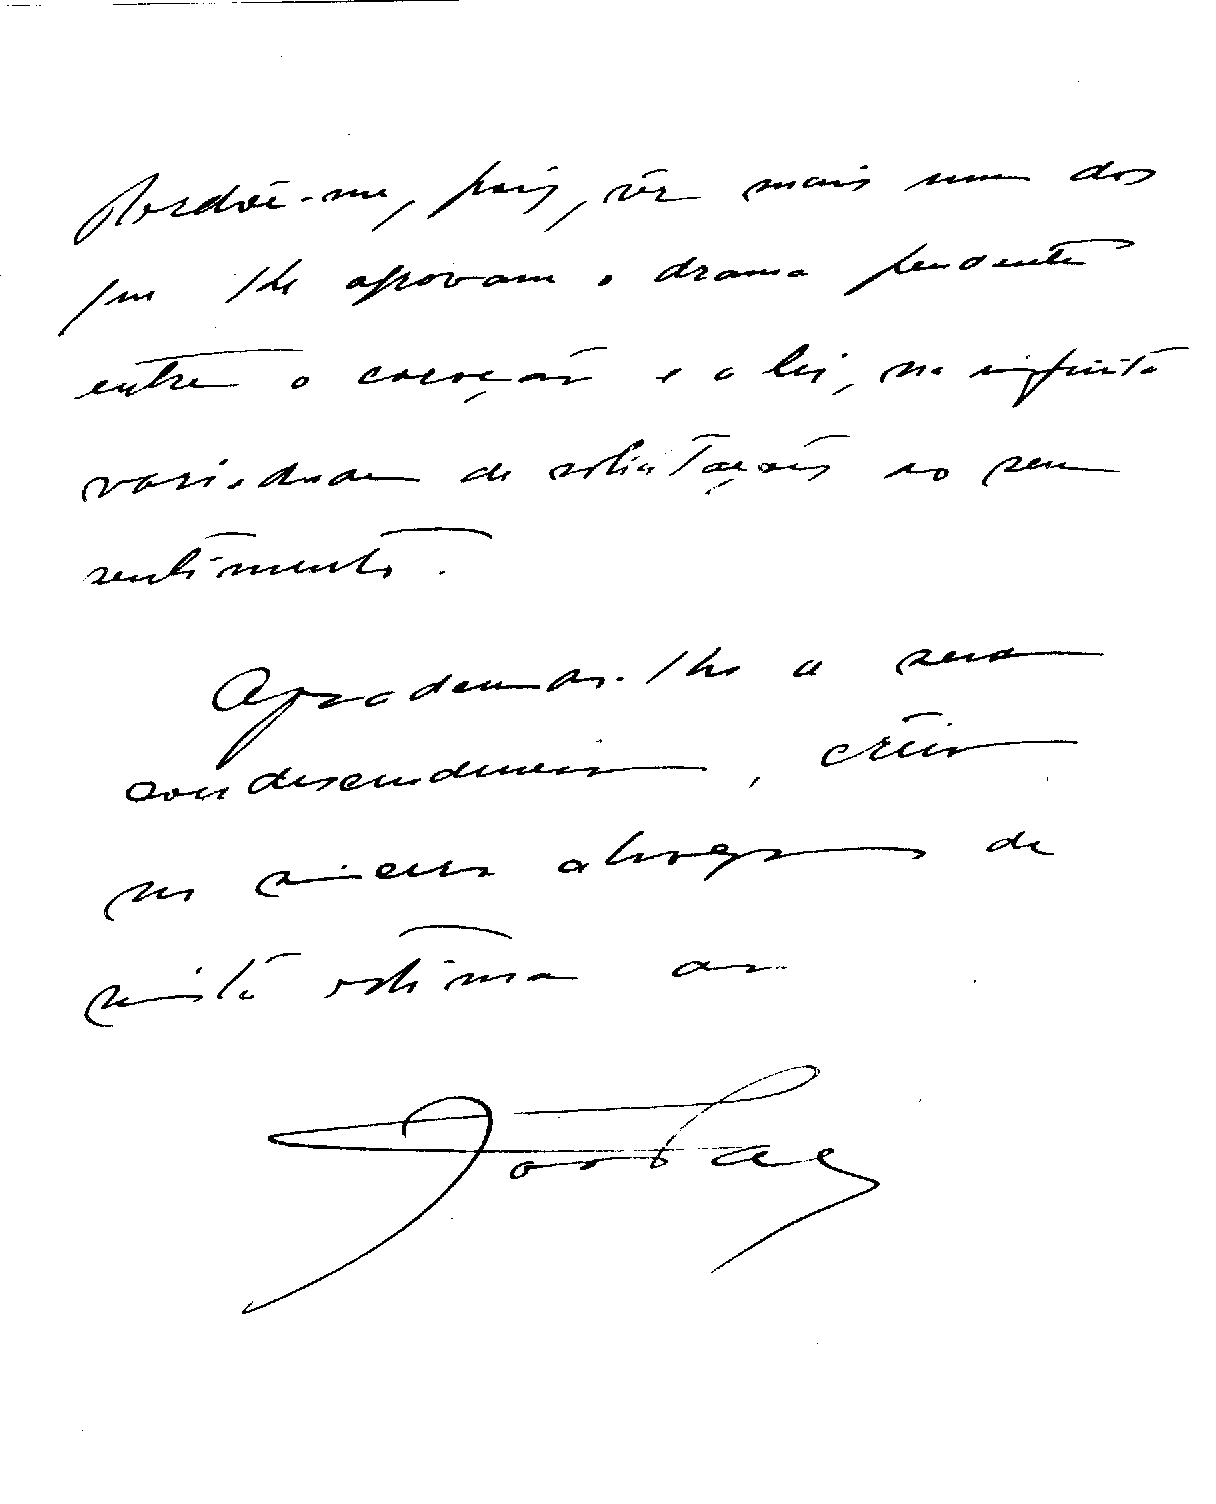 Perdôe-me, pois, vir mais um dos
que lhe aprovam o drama pendente
entre o coração e a lei, na infinita
variedade de solicitações ao seu
sentimento.
Agradecendo-lhe a sua
condescendencia, creia
no sincero abraço de
muita estima do